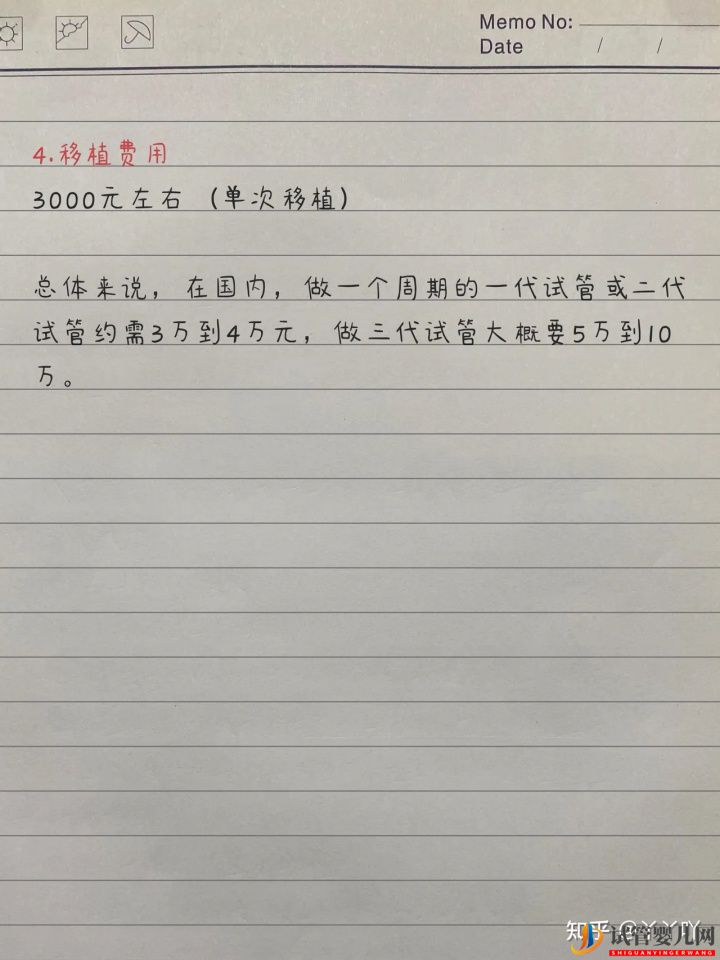 Memo No:
Date / /
4.移植费用
3000元左右 (单次移植)
总体来说，在国内，做一个周期的一代试管或二代
试管约需3万到4万元，做三代试管大概要5万到10
万。
知乎
试管婴儿网
SHIGUANYINGERWANG